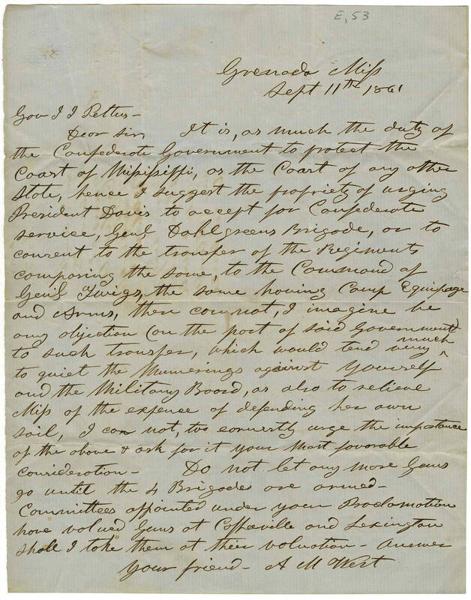 E, 53
Grenada Miss
Sept 11th 1861
Gov J J Pettus -
Dear sir, It is, as much the duty of
the Confederate Government to protect the
Coast of Mississippi, as the Coast of any other
State, hence I suggest the propriety of urging
President Davis to accept for Confederate
service, Genl Dahlgreens Brigade, or to
consent to the transfer of the Regiments
composing the same, to the Command of
Genl Twigs, the same having Camp Equipage
and Arms, there can not, I imagine be
any objection (on the part of said Government)
to such transfer, which would tend very much
to quiet the Murmerings against Yourself
and the Military Board, as also to relieve
Miss of the expense of defending her own
soil, I can not, too earnestly urge the importance
of the above & ask for it your Most favorable
Consideration - Do not let any more Guns
go until the 4 Brigade are armed -
Committees appointed under your Proclamation
have valued Guns at Coffeeville and Lexington
shall I take them at their valuation - Answer
Your friend - A M West